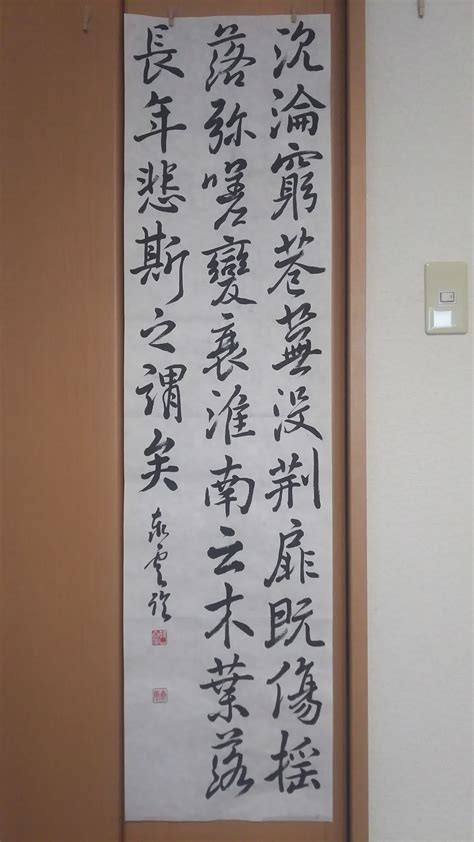 沉淪窮巷蕪没荊扉既傷揺
落弥嗟變衰淮南云木葉落
長年悲斯之謂矣
雲臨